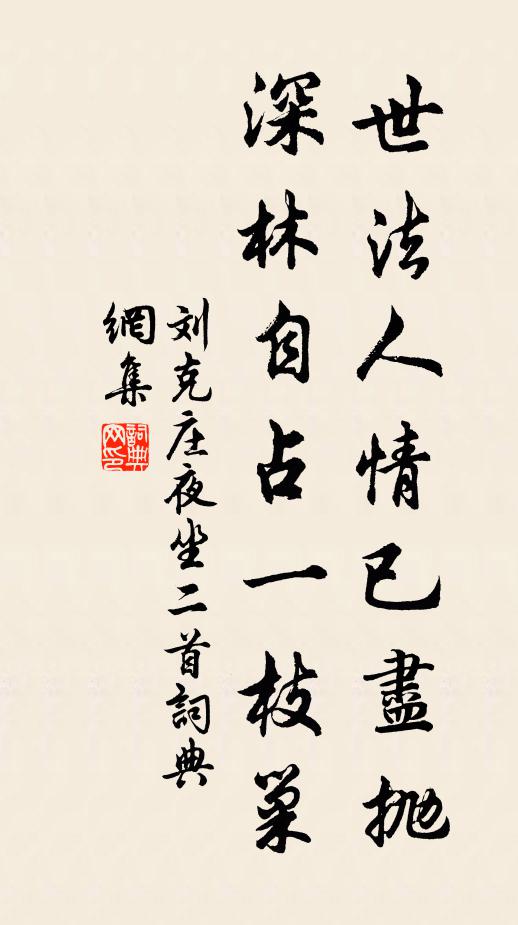 世法人情已盡抛
深林自占一枝巢
刘克庄夜坐二首詞典
網集
詞典
网印